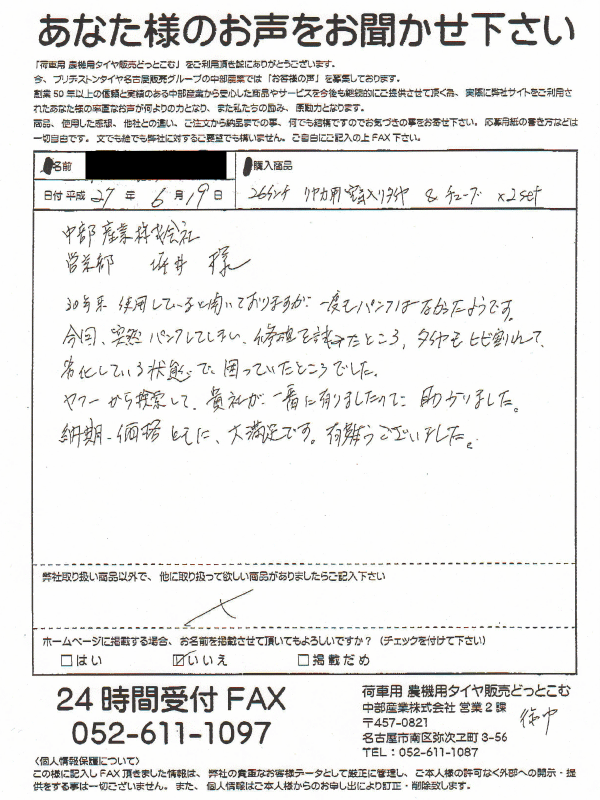 あなた様のお声をお聞かせ下さい
「荷車用 農機用タイヤ販売どっとこむ」をご利用頂き誠にありがとうございます。
今、ブリヂストンタイヤ名古屋販売グループの中部産業では「お客様の声」を募集しております。
創業50年以上の信頼と実績のある中部産業から安心した商品やサービスを今後も継続的にご提供させて頂く為、実際に弊社サイトをご利用さ
れたあなた様の率直なお声が何よりの力となり、また私たちの励み、原動力となります。
商品、使用した感想、他社との違い、ご注文から納品までの事、何でも結構ですのでお気づきの事をお寄せ下さい。応募用紙の書き方などは
一切自由です。文でも絵でも弊社に対するご要望でも構いません。ご自由にご記入の上FAX下さい。
名前
購入商品
日付 平成 27 年 6 月 19 日
26インチ リヤカー用 空気入りタイヤ & チューブ ×2set
中部産業株式会社
営業部 堀井 様
30年来 使用していると聞いておりますが、一度もパンクはなかったようです。
今回、突然パンクしてしまい、修理を試みたところ、タイヤもヒビ割れして、
劣化している状態で困っていたところでした。
ヤフーから検索して、貴社が一番に有りましたので助かりました。
納期・価格ともに、大満足です。有難うございました。
弊社取り扱い商品以外で、他に取り扱って欲しい商品がありましたらご記入下さい
ホームページに掲載する場合、お名前を掲載させて頂いてもよろしいですか？（チェックを付けて下さい）
□はい ☑いいえ □掲載だめ
24時間受付FAX
052-611-1097
荷車用 農機用タイヤ販売どっとこむ
中部産業株式会社 営業2課
〒457-0821
名古屋市南区弥次ヱ町3-56
TEL：052-611-1087
〈個人情報保護について〉
この様に記入しFAX頂きました情報は、弊社の貴重なお客様データとして厳正に管理し、ご本人様の許可なく外部への開示・提
供をする事は一切ございません。また、個人情報はご本人様からのお申し出により訂正・削除致します。